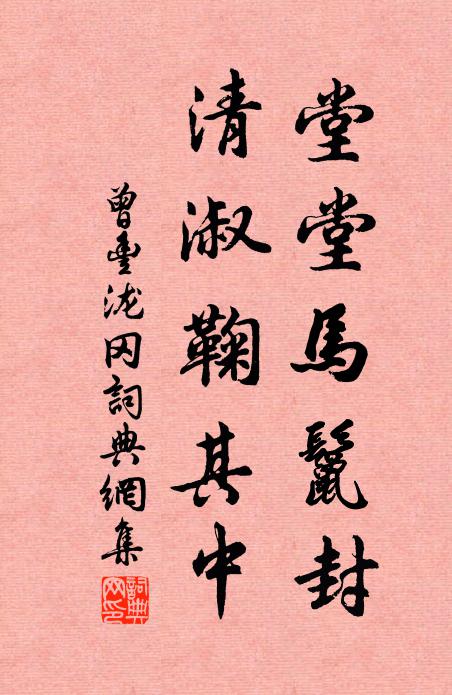 堂堂馬鬣封
清淑鞠其中
曾豐泷冈詞典網集
詞典網印